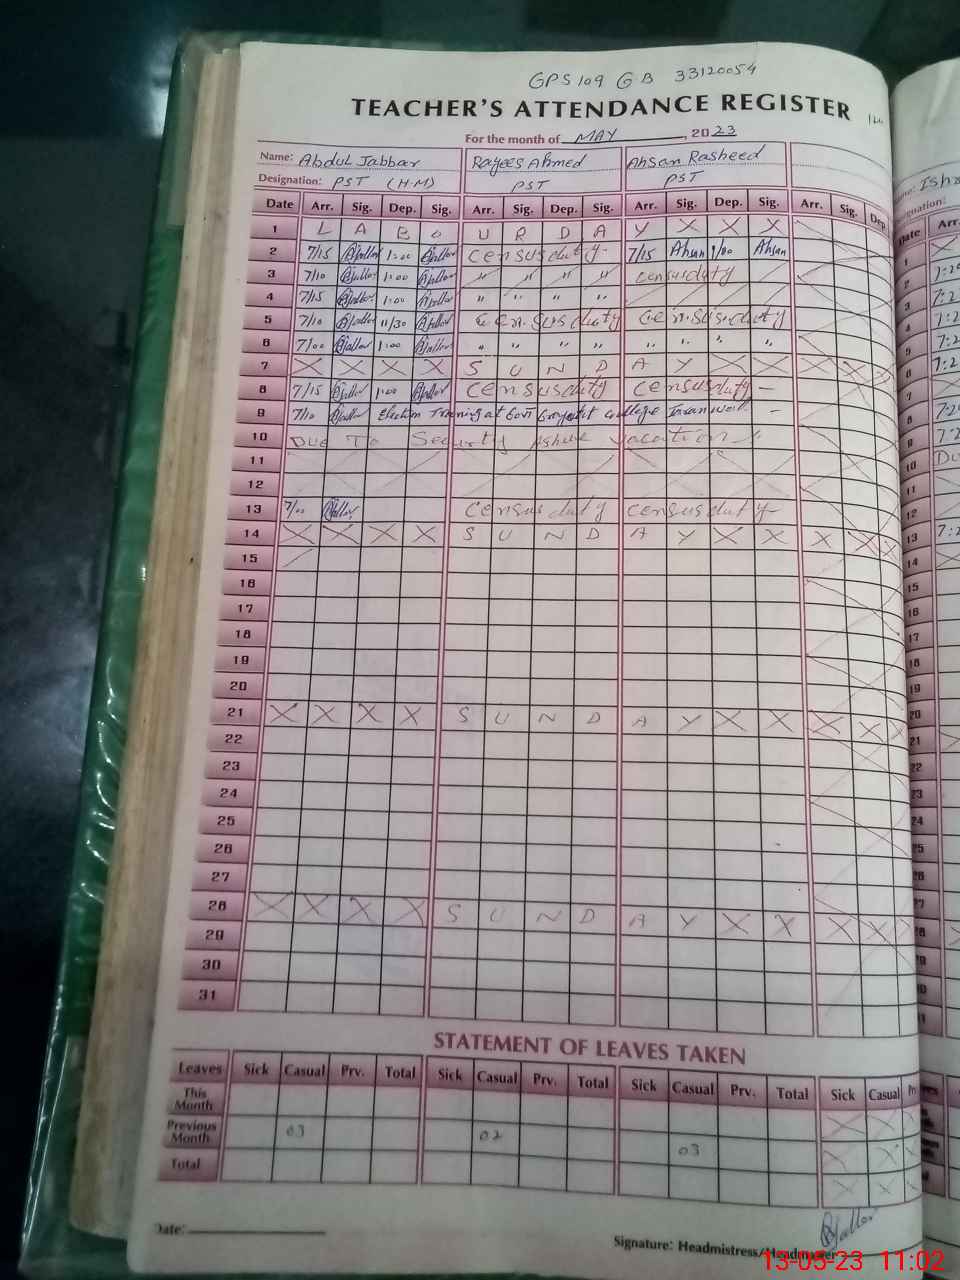 GPS 109 GB 33120054
TEACHER'S ATTENDANCE REGISTER
For the month of MAY, 2023
Name: Abdul Jabbar Rayees Ahmed Ahsan Rasheed
Designation: PST (H·M) PST PST
Date Arr. Sig. Dep. Sig. Arr. Sig. Dep. Sig. Arr. Sig. Dep. Sig. Arr. Sig. Dep
1 L A B O U R D A Y X X X
2 7/15 Jabbar 1:00 Jabbar Census duty 7/15 Ahsan 1/00 Ahsan
3 7/10 Jabbar 1:00 Jabbar " " " " Census duty
4 7/15 Jabbar 1:00 Jabbar " " " "
5 7/10 Jabbar 11/30 Jabbar Census duty Census duty
6 7/00 Jabbar 1:00 Jabbar " " " " " " " "
7 X X X X S U N D A Y X X X X
8 7/15 Jabbar 1:00 Jabbar Census duty Census duty –
9 7/10 Jabbar Election Training at Govt College
10 Due To Security vacation
11
12
13 7/00 Jabbar Census duty Census duty
14 X X X X S U N D A Y X X X X X
15
16
17
18
19
20
21 X X X X S U N D A Y X X X X
22
23
24
25
26
27
28 X X X X S U N D A Y X X X X
29
30
31
STATEMENT OF LEAVES TAKEN
Leaves Sick Casual Prv. Total Sick Casual Prv. Total Sick Casual Prv. Total Sick Casual
This Month
Previous Month 03 02 03
Total
Date:
Jabbar
Signature: Headmistress/Headmaster
13-05-23 11:02